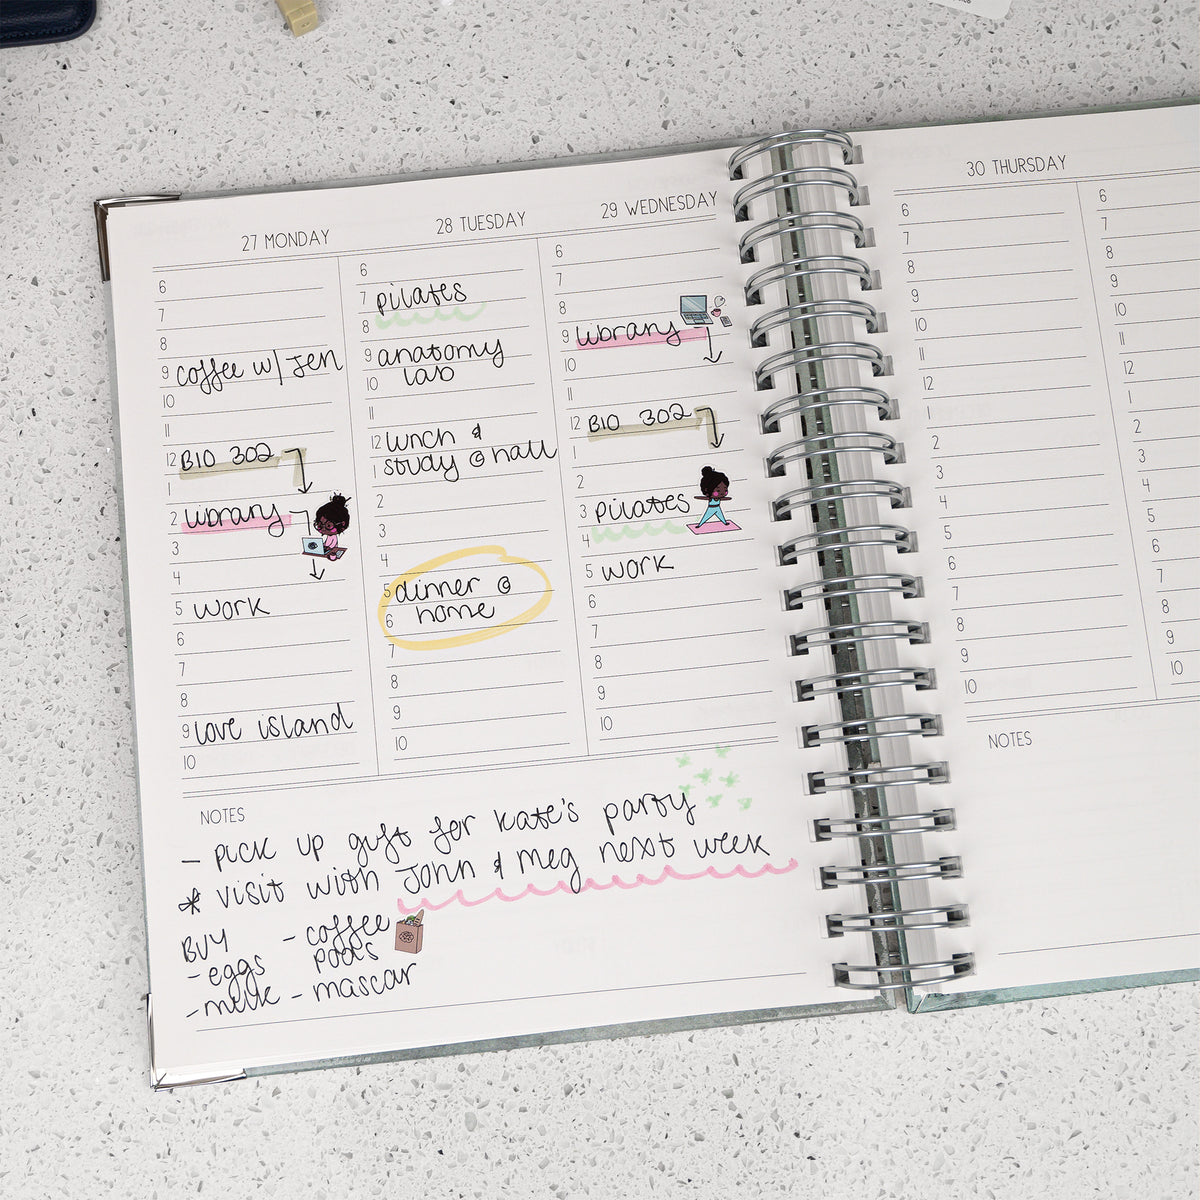 27 MONDAY
6
7
8
9 coffee w/ Jen
10
11
12 BIO 302
1
2 library
3
4
5 work
6
7
8
9 love island
10
28 TUESDAY
6
7 pilates
8
9 anatomy
10 lab
11
12 lunch &
1 study @ hall
2
3
4
5 dinner @
6 home
7
8
9
10
29 WEDNESDAY
6
7
8
9 library
10
11
12 BIO 302
1
2
3 pilates
4
5 work
6
7
8
9
10
NOTES
- pick up gift for kate's party
* visit with John & meg next week
BUY
- eggs
- milk
- coffee
pods
- mascar
30 THURSDAY
6
7
8
9
10
11
12
1
2
3
4
5
6
7
8
9
10
6
7
8
9
10
11
12
1
2
3
4
5
6
7
8
9
10
NOTES